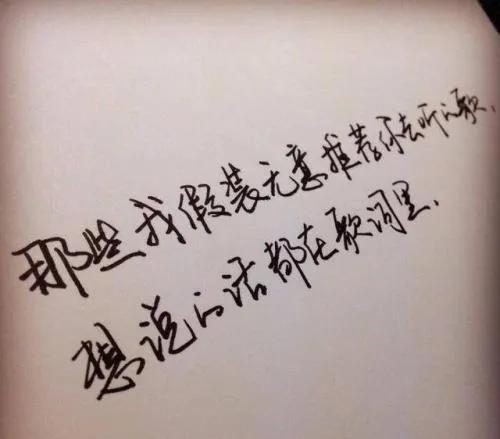 那些我假装无意推荐你去听的歌,
想说的话都在歌词里.